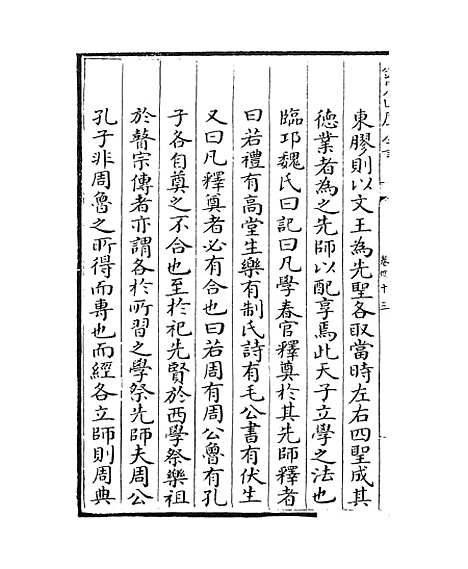 東膠則以文王為先聖各取當時左右四聖成其
徳業者為之先師以配享焉此天子立學之法也
臨邛魏氏曰記曰凡學春官釋奠於其先師釋者
曰若禮有高堂生樂有制氏詩有毛公書有伏生
又曰凡釋奠者必有合也曰若周有周公魯有孔
子各自奠之不合也至於祀先賢於西學祭樂祖
於瞽宗傳者亦謂各於所習之學祭先師夫周公
孔子非周魯之所得而專也而經各立師則周典
卷四十三